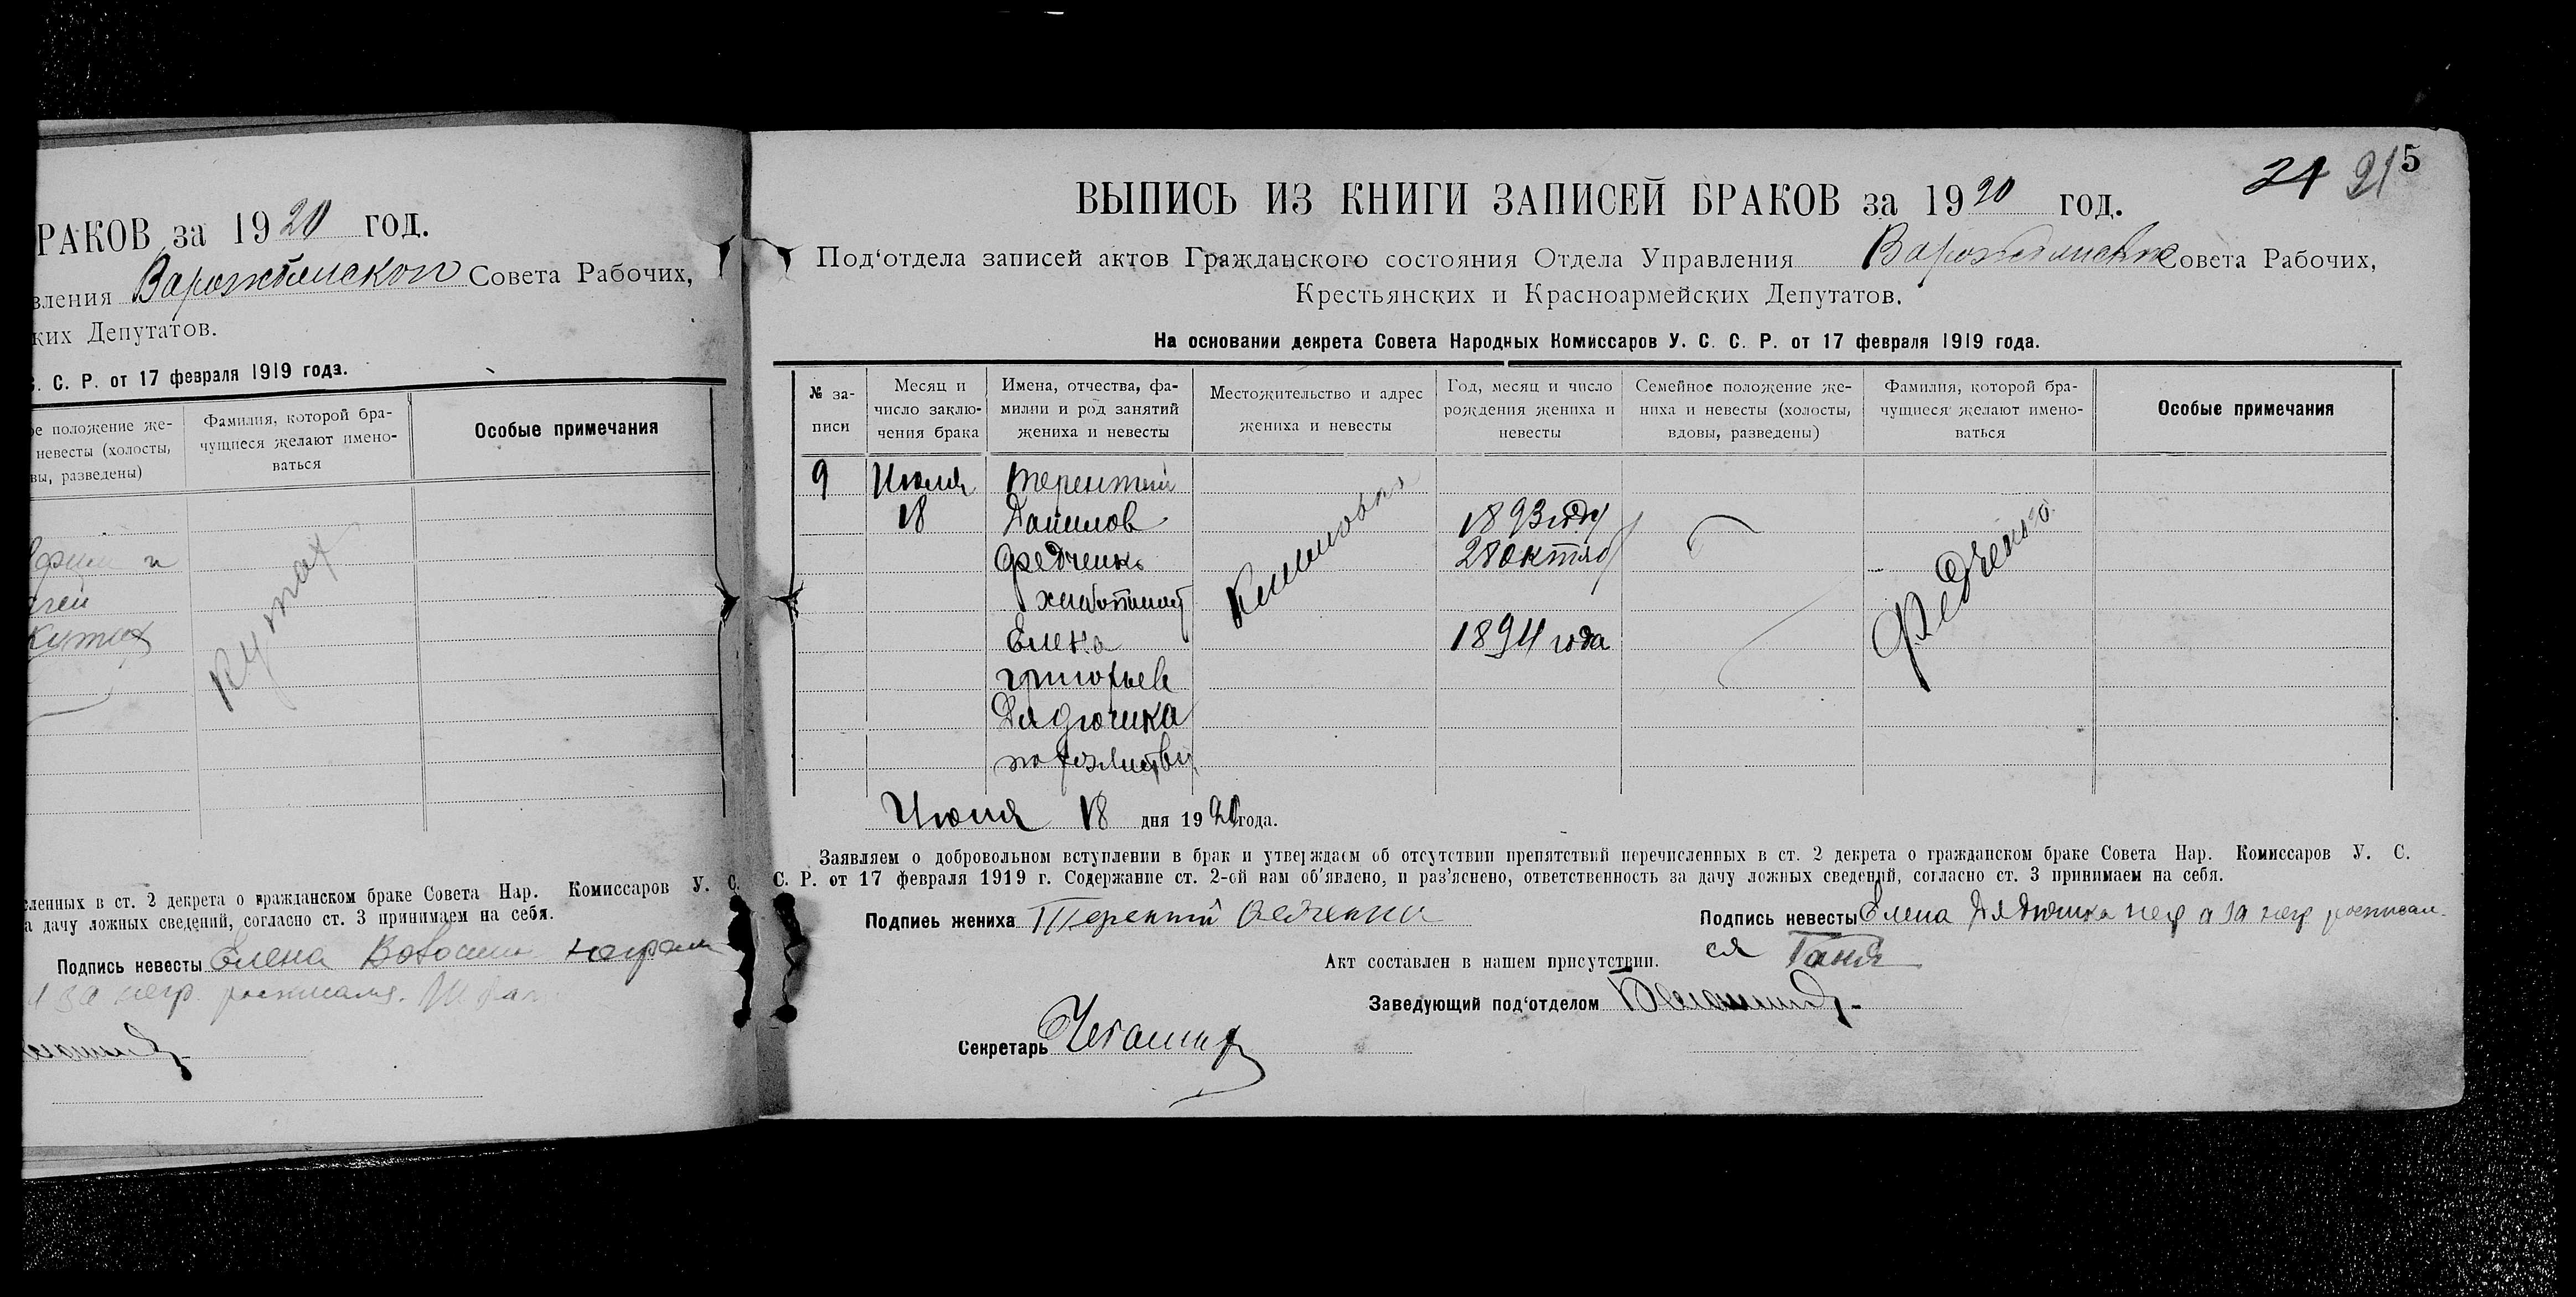 РАКОВ за 1920 год.
вления Варожбянской Совета Рабочих,
ких Депутатов.
С. Р. от 17 февраля 1919 года.
ое положение же-
невесты (холосты,
вы, разведены)
Фамилия, которой бра-
чущиеся желают имено-
ваться
Особые примечания
Кутах
Кутах
сленных в ст. 2 декрета о гражданском браке Совета Нар. Комиссаров У. С.
а дачу ложных сведений, согласно ст. 3 принимаем на себя.
Подпись невесты Елена
за негр.
24 21 5
ВЫПИСЬ ИЗ КНИГИ ЗАПИСЕЙ БРАКОВ за 1920 год.
Под‘отдела записей актов Гражданского состояния Отдела Управления Варожбянской Совета Рабочих,
Крестьянских и Красноармейских Депутатов.
На основании декрета Совета Народных Комиссаров У. С. С. Р. от 17 февраля 1919 года.
№ за-
писи
Месяц и
число заклю-
чения брака
Имена, отчества, фа-
милии и род занятий
жениха и невесты
Местожительство и адрес
жениха и невесты
Год, месяц и число
рождения жениха и
невесты
Семейное положение же-
ниха и невесты (холосты,
вдовы, разведены)
Фамилия, которой бра-
чущиеся желают имено-
ваться
Особые примечания
9 Июля Терентий
18 Данилов 1893 году
Федченко 28 октяб
Елена 1894 года
Григорьев
Дядюшка
Федченко
Июля 18 дня 1920 года.
Заявляем о добровольном вступлении в брак и утверждаем об отсутствии препятствий перечисленных в ст. 2 декрета о гражданском браке Совета Нар. Комиссаров У. С.
С. Р. от 17 февраля 1919 г. Содержание ст. 2-ой нам об'явлено, и раз'яснено, ответственность за дачу ложных сведений, согласно ст. 3 принимаем на себя.
Подпись жениха Терентий Федченко
Подпись невесты Елена Дядюшка негр а за негр росписал-
ся
Акт составлен в нашем присутствии.
Заведующий под‘отделом
Секретарь